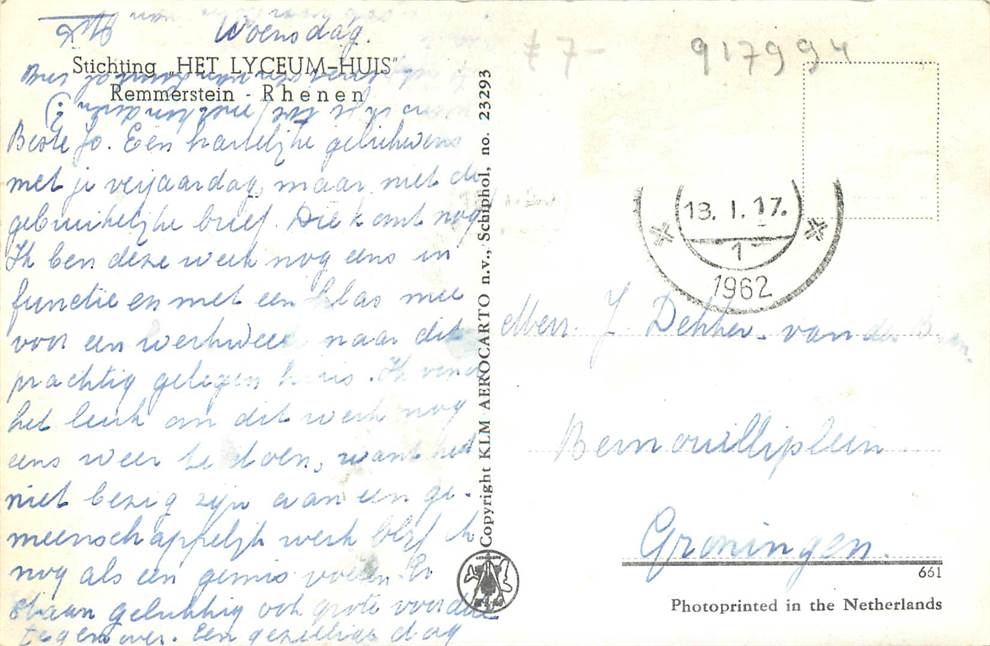 Woensdag.
Stichting „HET LYCEUM-HUIS"
Remmerstein - Rhenen
Beste Jo. Een hartelijke gelukwens
met je verjaardag, maar niet de
gebruikelijke brief. Die komt nog
Ik ben deze week nog eens in
functie en met een klas mee
voor een werkweek naar dit
prachtig gelegen huis. Ik vind
het leuk om dit werk nog
eens weer te doen, want het
niet bezig zijn aan een ge-
meenschappelijk werk blijf ik
nog als een gemis voelen. Er
staan gelukkig ook grote voordelen
tegenover. Een gezellige dag
Copyright KLM AEROCARTO n.v., Schiphol, no. 23293
£ 7-
917994
13. I. 17.
1
1962
Mevr. J. Dekker - van der
Bernouilliplein
Groningen.
661
Photoprinted in the Netherlands